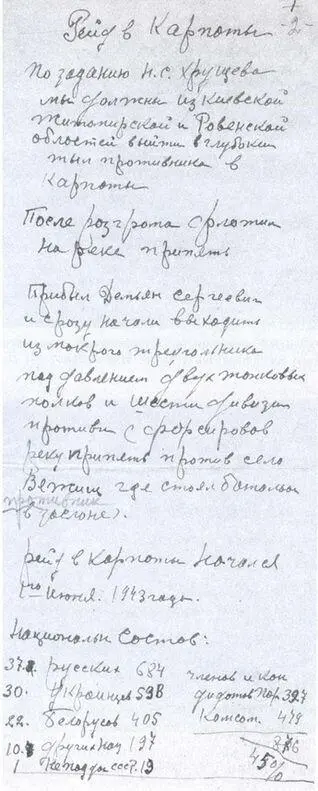 Рейд в Карпаты -2-
По заданию Н.С. Хрущева
мы должны из Киевской
Житомирской и Ровенской
областей выйти в глубокий
тыл противника в
Карпаты
После розгрома флотилии
на реке припять
Прибыл Демьян Сергеевич
и сразу начали выходить
из мокрого треугольника
под давлением двух танковых
полков и шести дивизий
противн форсировав
реку припять против село
Вежищ где стоял батальон
противник
в засоне).
рейд в Карпаты начался
июня. 1943 годы.
Национальн Состав:
37. русских 684 членов и кан
30. Украинцы 598 дидатов пар. 397
22. Белорусов 405 Комсом. 479
10. других нац 197 876
1 не подда СССР. 19 45%